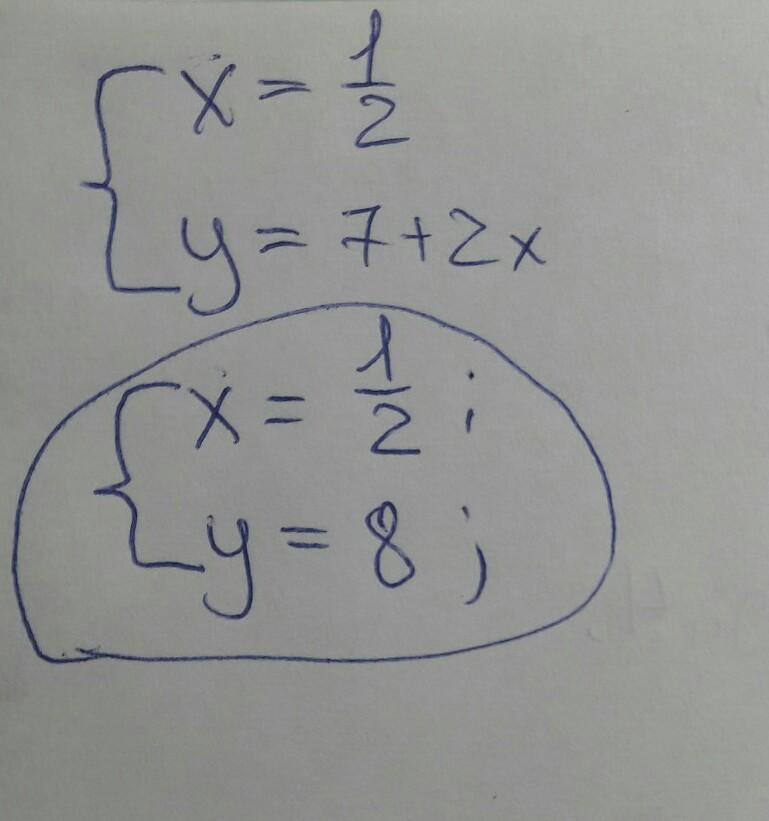 x = 1/2
y = 7+2x
x = 1/2 ;
y = 8 ;